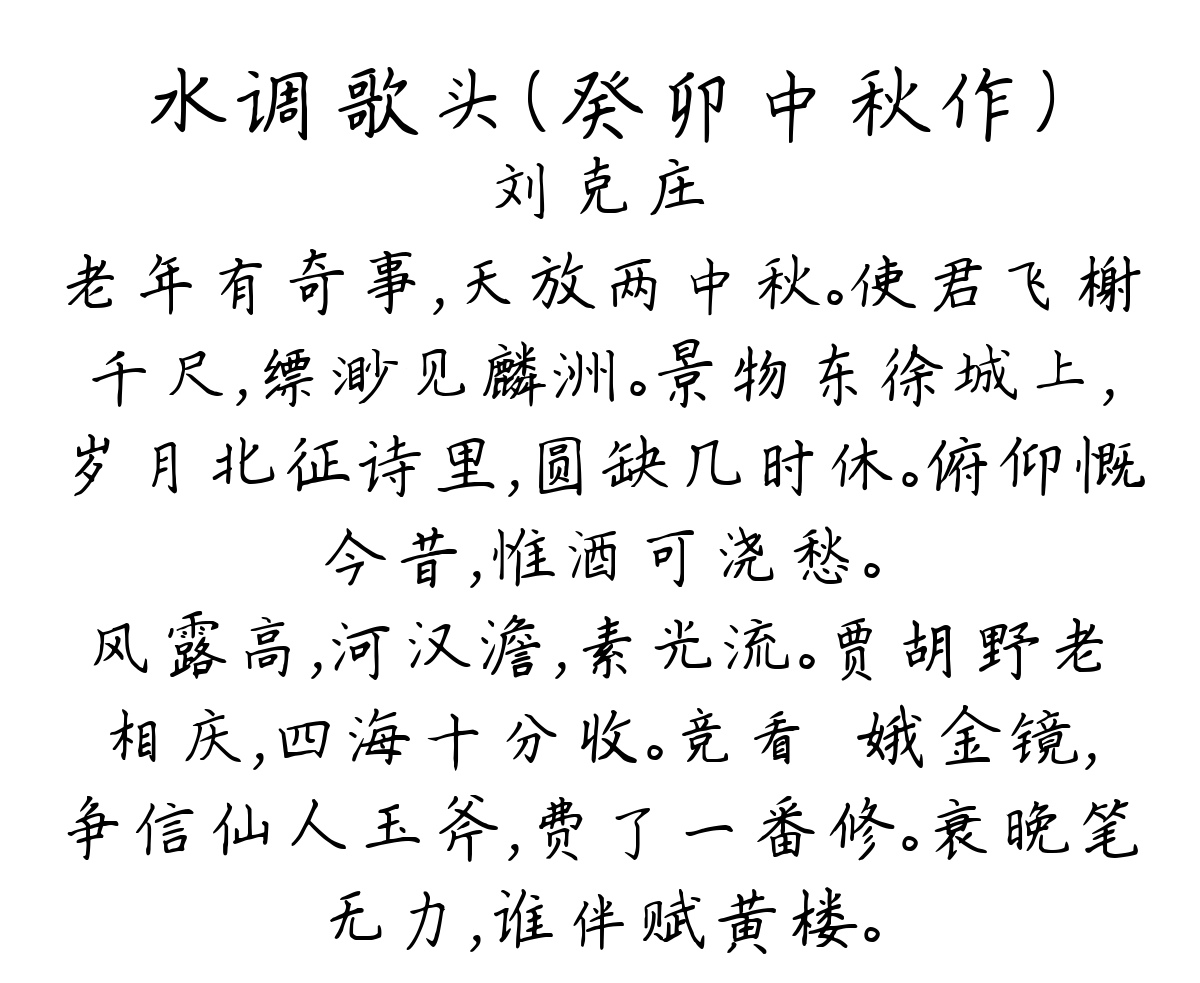 水调歌头(癸卯中秋作)
刘克庄
老年有奇事,天放两中秋。使君飞榭
千尺,缥渺见麟洲。景物东徐城上,
岁月北征诗里,圆缺几时休。俯仰慨
今昔,惟酒可浇愁。
风露高,河汉澹,素光流。贾胡野老
相庆,四海十分收。竞看 娥金镜,
争信仙人玉斧,费了一番修。衰晚笔
无力,谁伴赋黄楼。